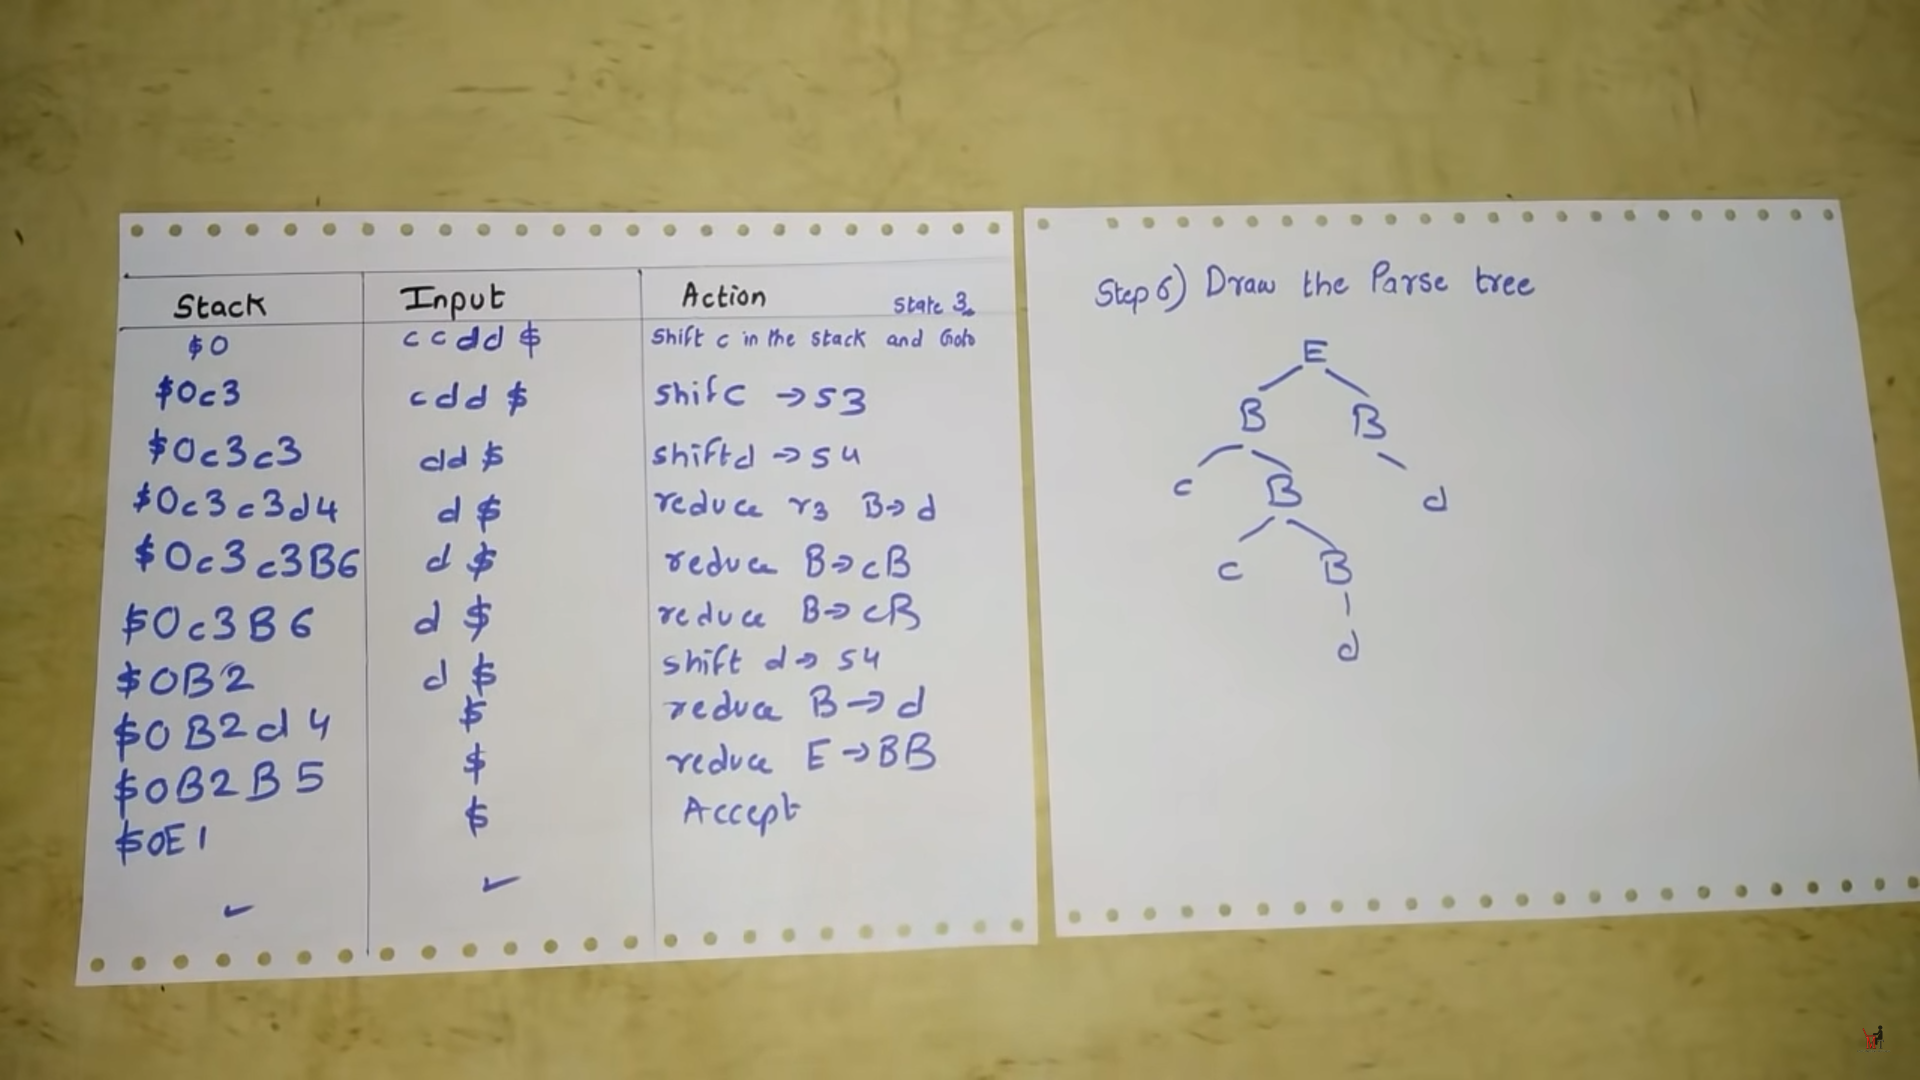 Stack Input Action State 3
$0 ccdd $ Shift c in the stack and Goto
$0c3 cdd $ shifC → S3
$0c3c3 dd $ shiftd → S4
$0c3c3d4 d $ reduce r3 B→d
$0c3c3B6 d $ reduce B→cB
$0c3B6 d $ reduce B→cB
$0B2 d $ shift d→ S4
$0B2d4 $ reduce B→d
$0B2B5 $ reduce E→BB
$0E1 $ Accept
Step 6) Draw the Parse tree
E
B B
c B d
c B
d